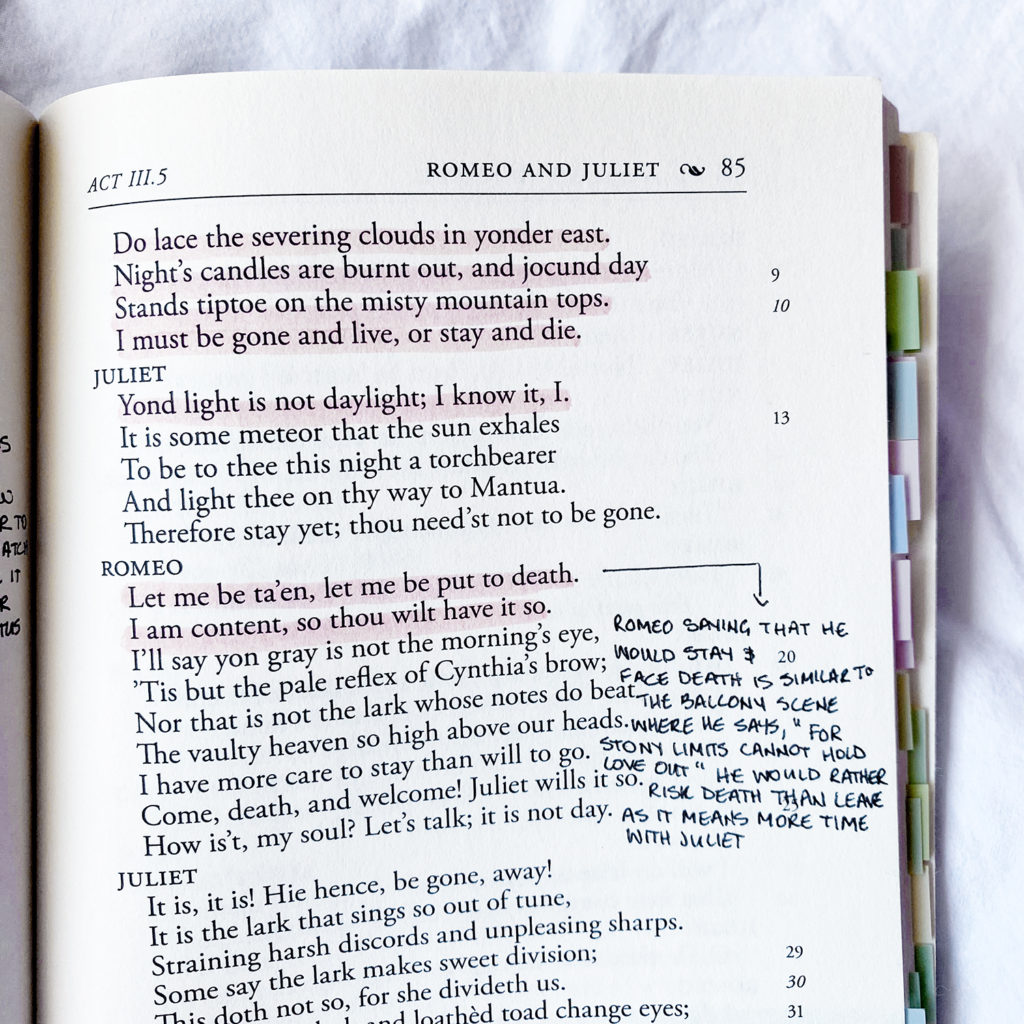 ACT III.5 ROMEO AND JULIET 85
Do lace the severing clouds in yonder east.
Night's candles are burnt out, and jocund day 9
Stands tiptoe on the misty mountain tops. 10
I must be gone and live, or stay and die.
JULIET
Yond light is not daylight; I know it, I.
It is some meteor that the sun exhales 13
To be to thee this night a torchbearer
And light thee on thy way to Mantua.
Therefore stay yet; thou need'st not to be gone.
ROMEO
Let me be ta'en, let me be put to death.
I am content, so thou wilt have it so.
I'll say yon gray is not the morning's eye,
'Tis but the pale reflex of Cynthia's brow; 20
Nor that is not the lark whose notes do beat
The vaulty heaven so high above our heads.
I have more care to stay than will to go.
Come, death, and welcome! Juliet wills it so.
How is't, my soul? Let's talk; it is not day.
ROMEO SAYING THAT HE
WOULD STAY &
FACE DEATH IS SIMILAR TO
THE BALCONY SCENE
WHERE HE SAYS, "FOR
STONY LIMITS CANNOT HOLD
LOVE OUT" HE WOULD RATHER
RISK DEATH THAN LEAVE
AS IT MEANS MORE TIME
WITH JULIET
JULIET
It is, it is! Hie hence, be gone, away!
It is the lark that sings so out of tune,
Straining harsh discords and unpleasing sharps.
Some say the lark makes sweet division; 29
This doth not so, for she divideth us. 30
and loathèd toad change eyes; 31